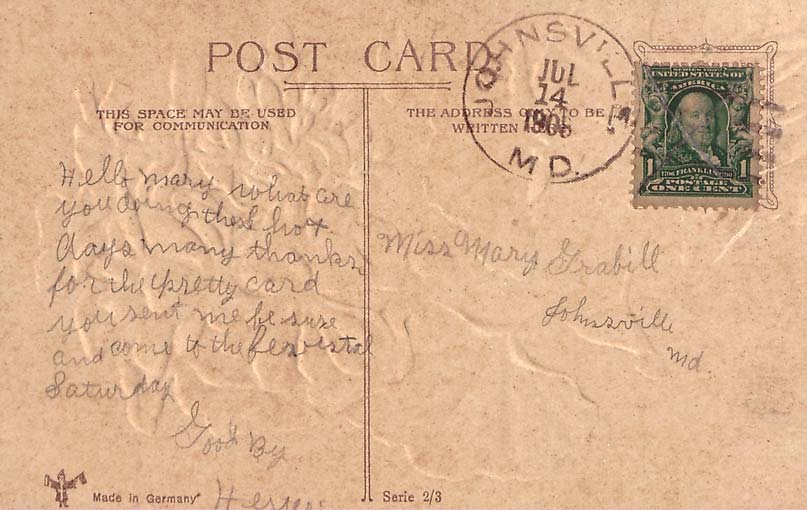 POST CARD
THIS SPACE MAY BE USED
FOR COMMUNICATION
THE ADDRESS ONLY TO BE
WRITTEN
JOHNSVILLE
JUL
14
MD.
SERIES 1902
UNITED STATES OF
AMERICA
1 1706 FRANKLIN 1790 1
POSTAGE
ONE CENT
Hello mary what are
you doing these hot
days many thanks
for the pretty card
you sent me be sure
and come to the fesvistal
Saturday
Good By
Hester
Miss Mary Grabill
Johnsville
Md.
Made in Germany
Serie 2/3